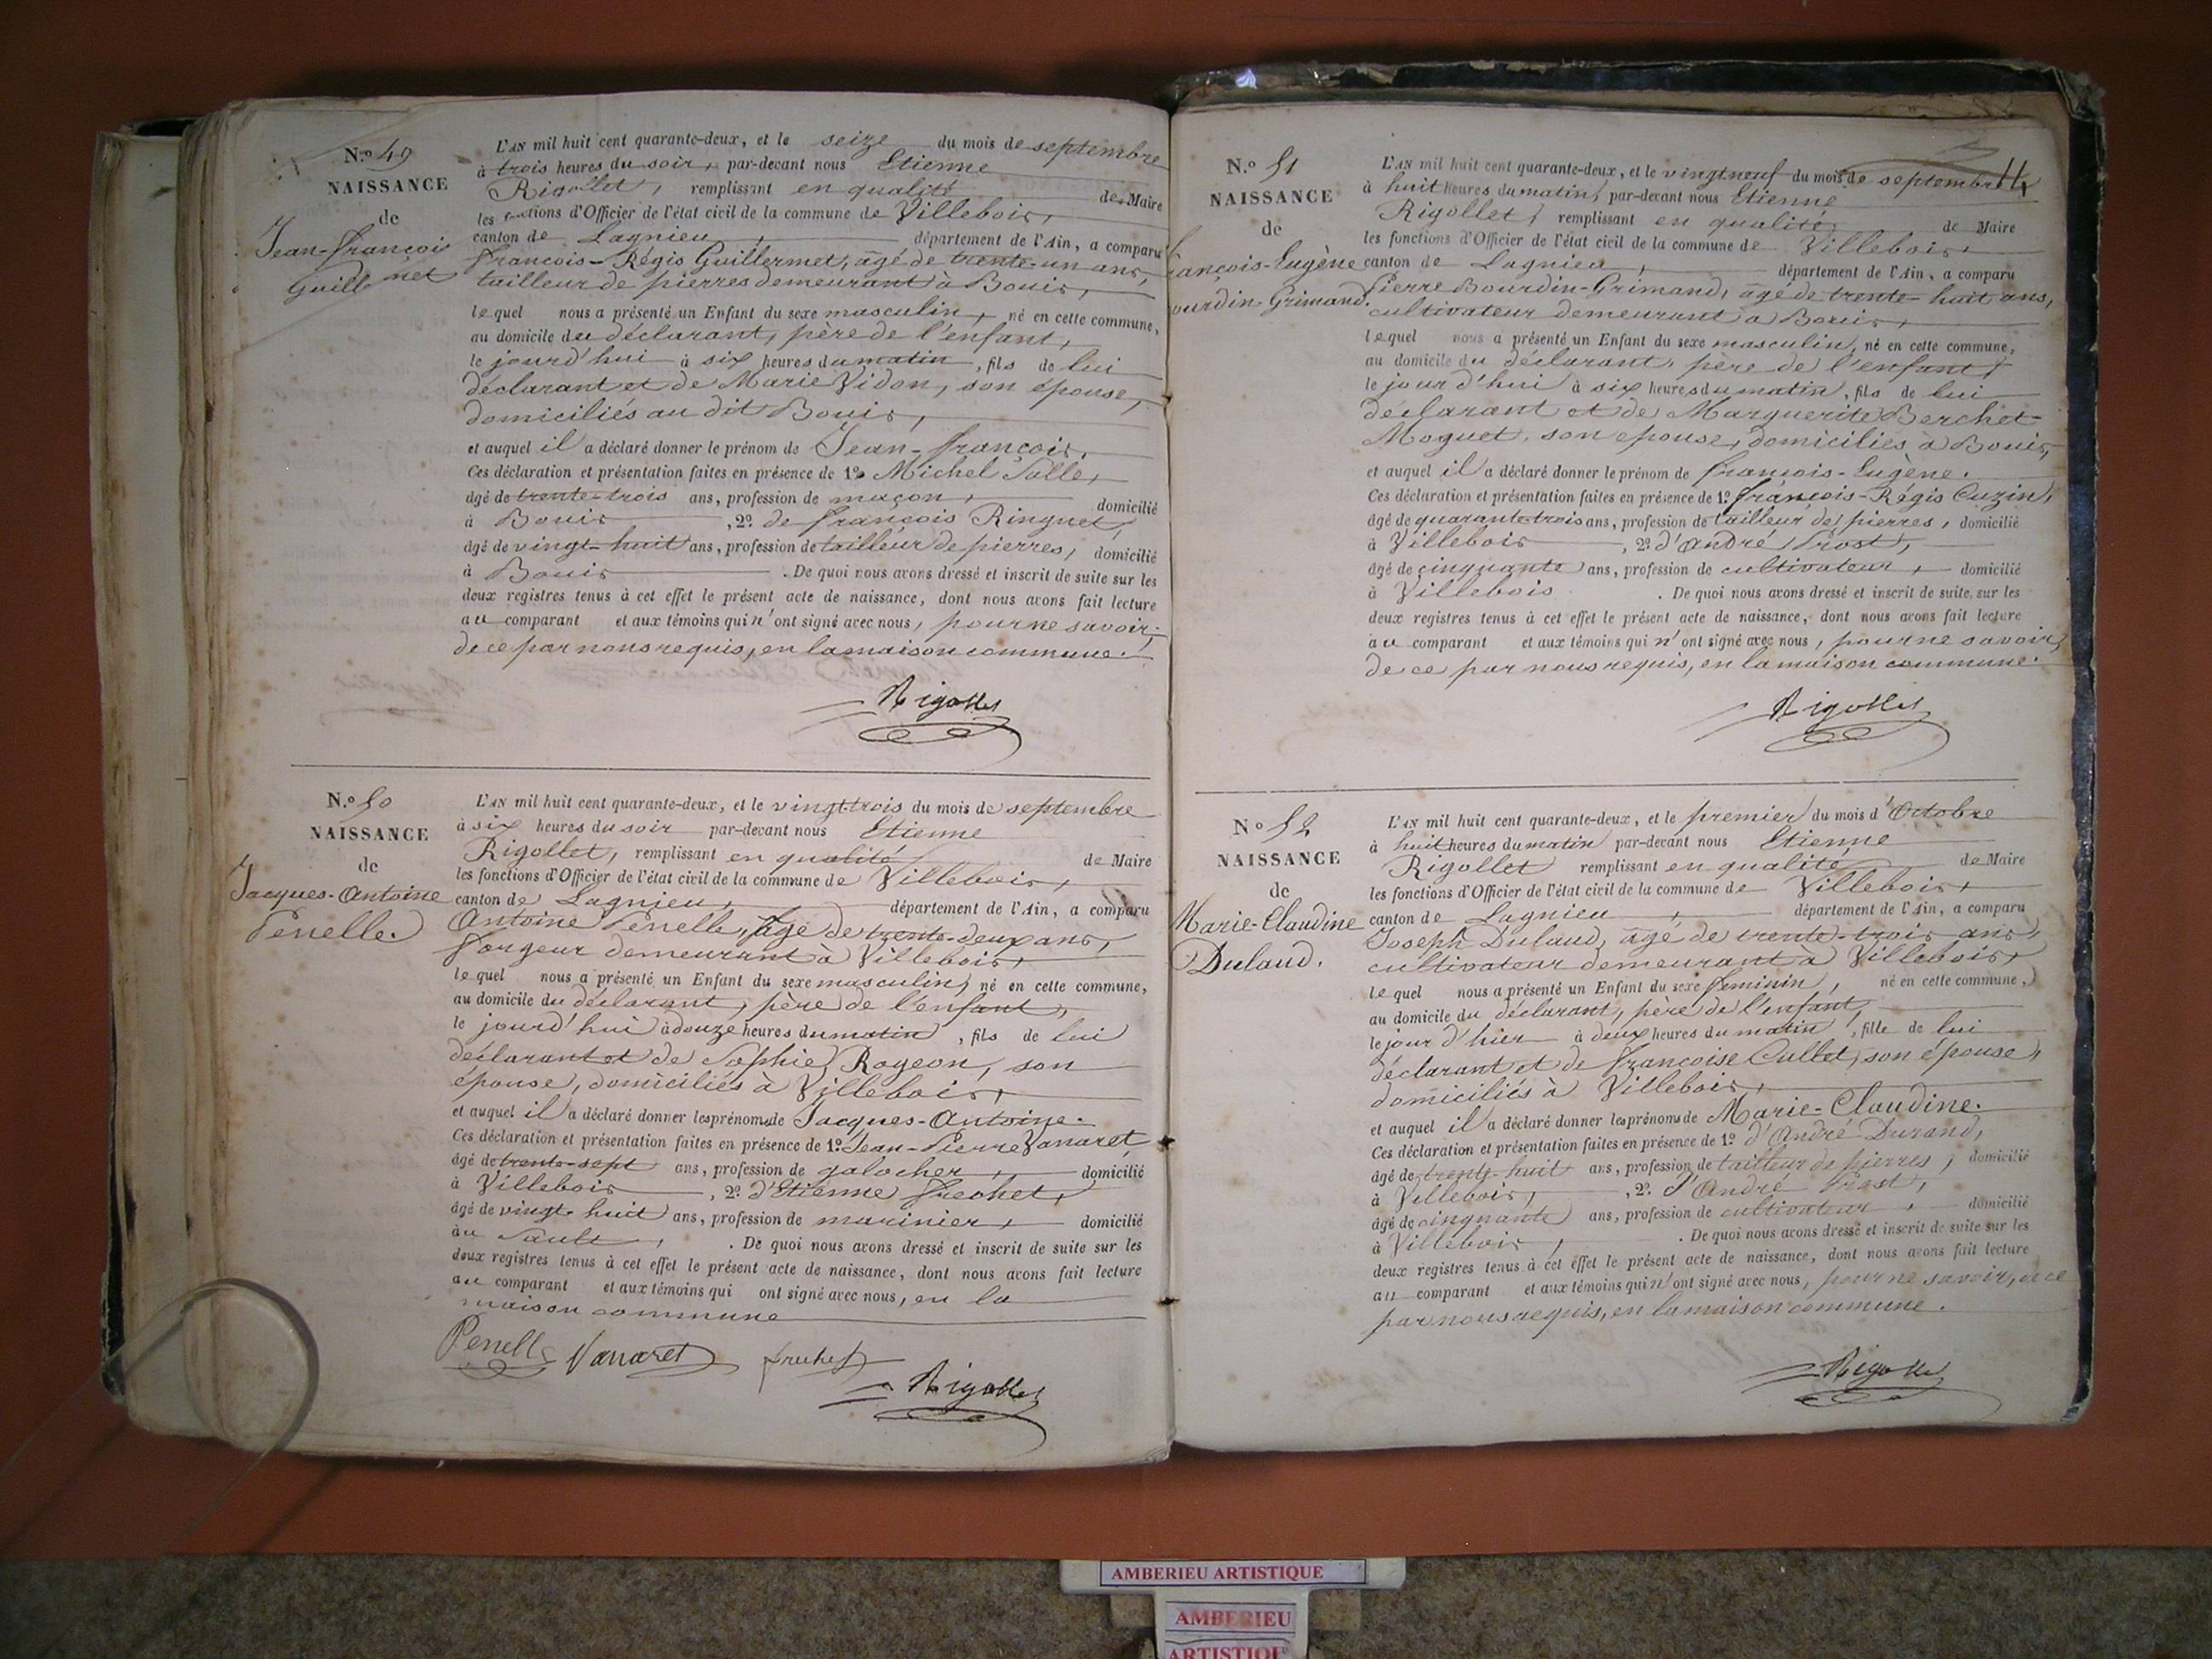 N.o 49
NAISSANCE
de
Jean-françois
Guill met
L'AN mil huit cent quarante-deux, et le seize du mois de septembre
à trois heures du soir, par-devant nous Etienne
Rigollet, remplissant en qualité de Maire
les fonctions d'Officier de l'état civil de la commune de Villebois,
canton de Lagnieu, département de l'Ain, a comparu
francois-Régis Guillermet, âgé de trente-un ans,
tailleur de pierres demeurant à Bouis,
lequel nous a présenté un Enfant du sexe masculin, né en cette commune,
au domicile du déclarant, père de l'enfant,
le jourd'hui à six heures du matin, fils de lui
déclarant et de Marie Vidon, son épouse,
domiciliés au dit Bouis,
et auquel il a déclaré donner le prénom de Jean-françois.
Ces déclaration et présentation faites en présence de 1o Michel Solle,
âgé de trente-trois ans, profession de maçon, domicilié
à Bouis, 2o de françois Ringuet,
âgé de vingt-huit ans, profession de tailleur de pierres, domicilié
à Bouis. De quoi nous avons dressé et inscrit de suite sur les
deux registres tenus à cet effet le présent acte de naissance, dont nous avons fait lecture
au comparant et aux témoins qui n'ont signé avec nous, pour ne savoir,
de ce par nous requis, en la maison commune.
Rigollet
N.o 50
NAISSANCE
de
Jacques-Antoine
Penelle.
L'AN mil huit cent quarante-deux, et le vingt trois du mois de septembre
à six heures du soir par-devant nous Etienne
Rigollet, remplissant en qualité de Maire
les fonctions d'Officier de l'état civil de la commune de Villebois,
canton de Lagnieu, département de l'Ain, a comparu
Antoine Penelle, âgé de trente-deux ans,
forgeur demeurant à Villebois,
lequel nous a présenté un Enfant du sexe masculin, né en cette commune,
au domicile du déclarant, père de l'enfant,
le jourd'hui à douze heures du matin, fils de lui
déclarant et de Sophie Rogeon, son
épouse, domiciliés à Villebois,
et auquel il a déclaré donner les prénoms de Jacques-Antoine.
Ces déclaration et présentation faites en présence de 1o Jean-Pierre Vanaret,
âgé de trente-sept ans, profession de galocher, domicilié
à Villebois, 2o d'Etienne frechet,
âgé de vingt-huit ans, profession de marinier, domicilié
au Sault, . De quoi nous avons dressé et inscrit de suite sur les
deux registres tenus à cet effet le présent acte de naissance, dont nous avons fait lecture
au comparant et aux témoins qui ont signé avec nous, en la
maison commune
Penelle Vanaret frechet
Rigollet
14
N.o 51
NAISSANCE
de
rançois-Eugène
ourdin-Grimand.
L'AN mil huit cent quarante-deux, et le vingt neuf du mois de septembre
à huit heures du matin, par-devant nous Etienne
Rigollet, remplissant en qualité de Maire
les fonctions d'Officier de l'état civil de la commune de Villebois,
canton de Lagnieu, département de l'Ain, a comparu
Pierre Bourdin-Grimand, âgé de trente-huit ans,
cultivateur demeurant à Bouis,
lequel nous a présenté un Enfant du sexe masculin, né en cette commune,
au domicile du déclarant, père de l'enfant,
le jour d'hui à six heures du matin, fils de lui
déclarant et de Marguerite Berchet-
Moguet, son épouse, domiciliés à Bouis,
et auquel il a déclaré donner le prénom de françois-Eugène.
Ces déclaration et présentation faites en présence de 1o françois-Régis Cuzin,
âgé de quarante-trois ans, profession de tailleur de pierres, domicilié
à Villebois, 2o d'André Prost,
âgé de cinquante ans, profession de cultivateur, domicilié
à Villebois. De quoi nous avons dressé et inscrit de suite sur les
deux registres tenus à cet effet le présent acte de naissance, dont nous avons fait lecture
au comparant et aux témoins qui n'ont signé avec nous, pour ne savoir,
de ce par nous requis, en la maison commune.
Rigollet
N.o 52
NAISSANCE
de
Marie-Claudine
Dulaud.
L'AN mil huit cent quarante-deux, et le premier du mois d'Octobre
à huit heures du matin par-devant nous Etienne
Rigollet remplissant en qualité de Maire
les fonctions d'Officier de l'état civil de la commune de Villebois,
canton de Lagnieu, département de l'Ain, a comparu
Joseph Dulaud, âgé de trente-trois ans,
cultivateur demeurant à Villebois,
lequel nous a présenté un Enfant du sexe féminin, né en cette commune,
au domicile du déclarant, père de l'enfant,
le jour d'hier à deux heures du matin, fille de lui
déclarant et de françoise Cullet, son épouse,
domiciliés à Villebois,
et auquel il a déclaré donner les prénoms de Marie-Claudine.
Ces déclaration et présentation faites en présence de 1o d'André Durand,
âgé de trente-huit ans, profession de tailleur de pierres, domicilié
à Villebois, 2o d'André Prost,
âgé de cinquante ans, profession de cultivateur, domicilié
à Villebois, . De quoi nous avons dressé et inscrit de suite sur les
deux registres tenus à cet effet le présent acte de naissance, dont nous avons fait lecture
au comparant et aux témoins qui n'ont signé avec nous, pour ne savoir, de ce
par nous requis, en la maison commune.
Rigollet
AMBERIEU ARTISTIQUE
AMBERIEU
ARTISTIQU